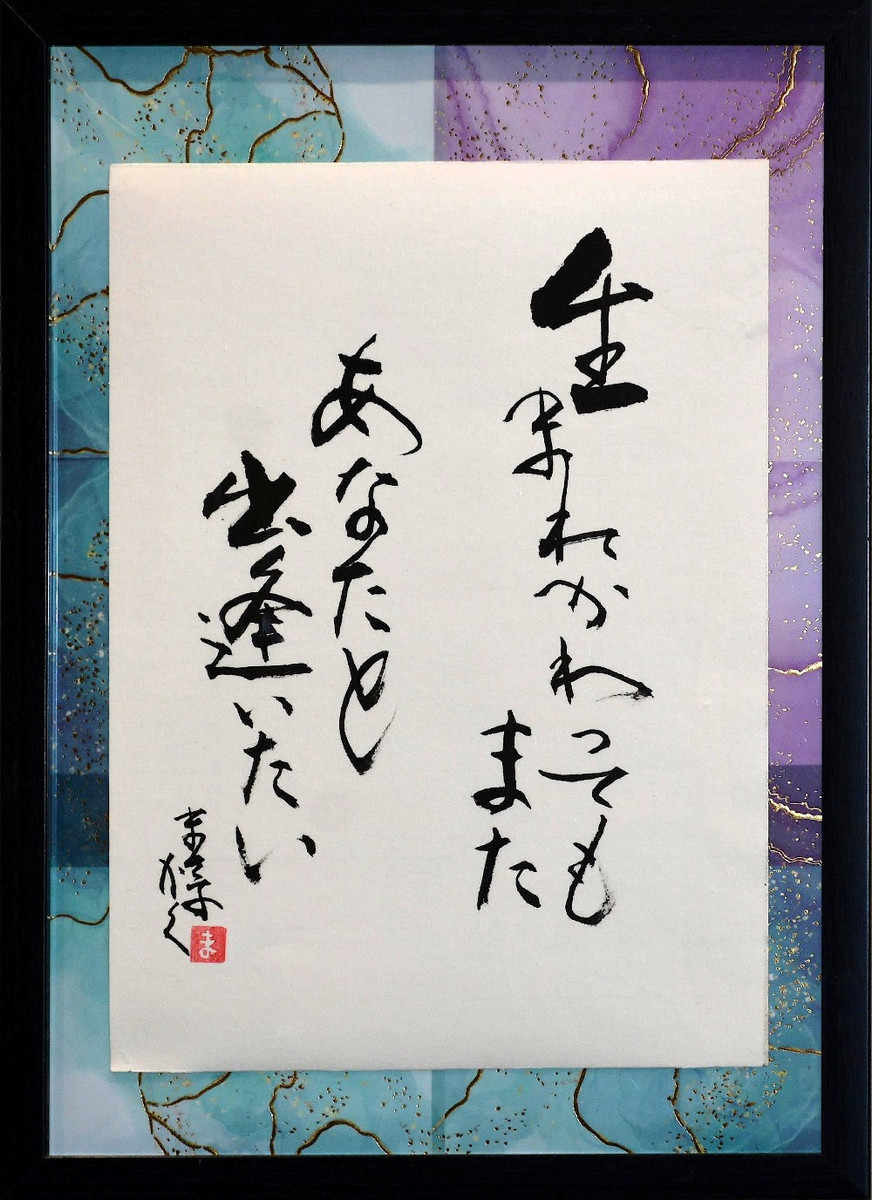 生まれかわっても
また
あなたと
出逢いたい
ま